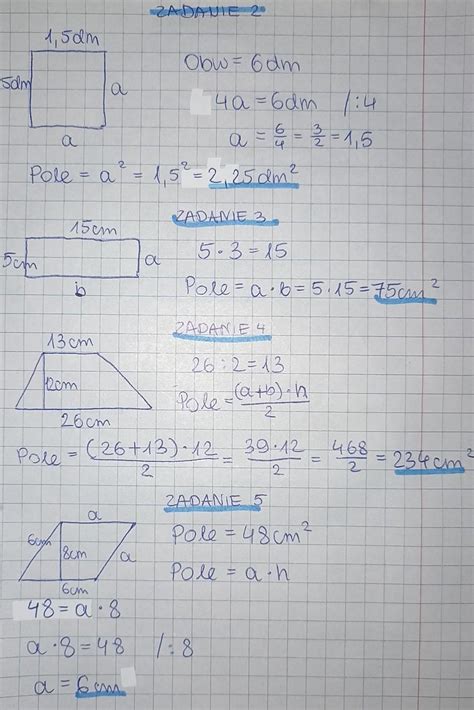 ZADANIE 2
1,5dm
5dm
a
a
Obw = 6dm
4a = 6dm /:4
a = 6/4 = 3/2 = 1,5
Pole = a² = 1,5² = 2,25dm²
ZADANIE 3
15cm
5cm
a
b
5·3=15
Pole = a·b = 5·15 = 75cm²
ZADANIE 4
13cm
12cm
26cm
26:2=13
Pole = (a+b)·h/2
Pole = (26+13)·12/2 = 39·12/2 = 468/2 = 234cm²
ZADANIE 5
a
6cm
8cm
a
6cm
Pole = 48cm²
Pole = a·h
48 = a·8
a·8 = 48 /:8
a = 6cm